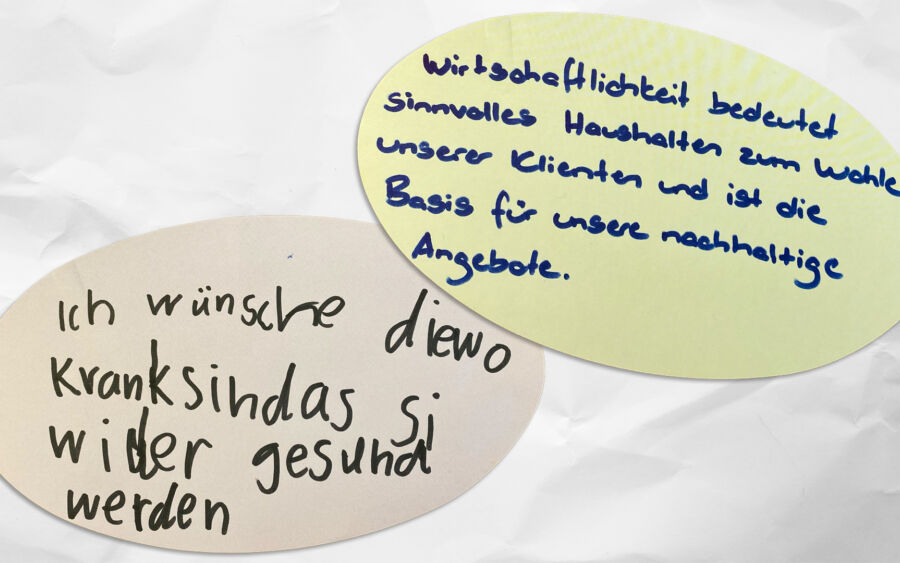 Wirtschaftlichkeit bedeutet
sinnvolles Haushalten zum Wohle
unserer Klienten und ist die
Basis für unsere nachhaltige
Angebote.
Ich wünsche diewo
Kranksindas si
wider gesund
werden